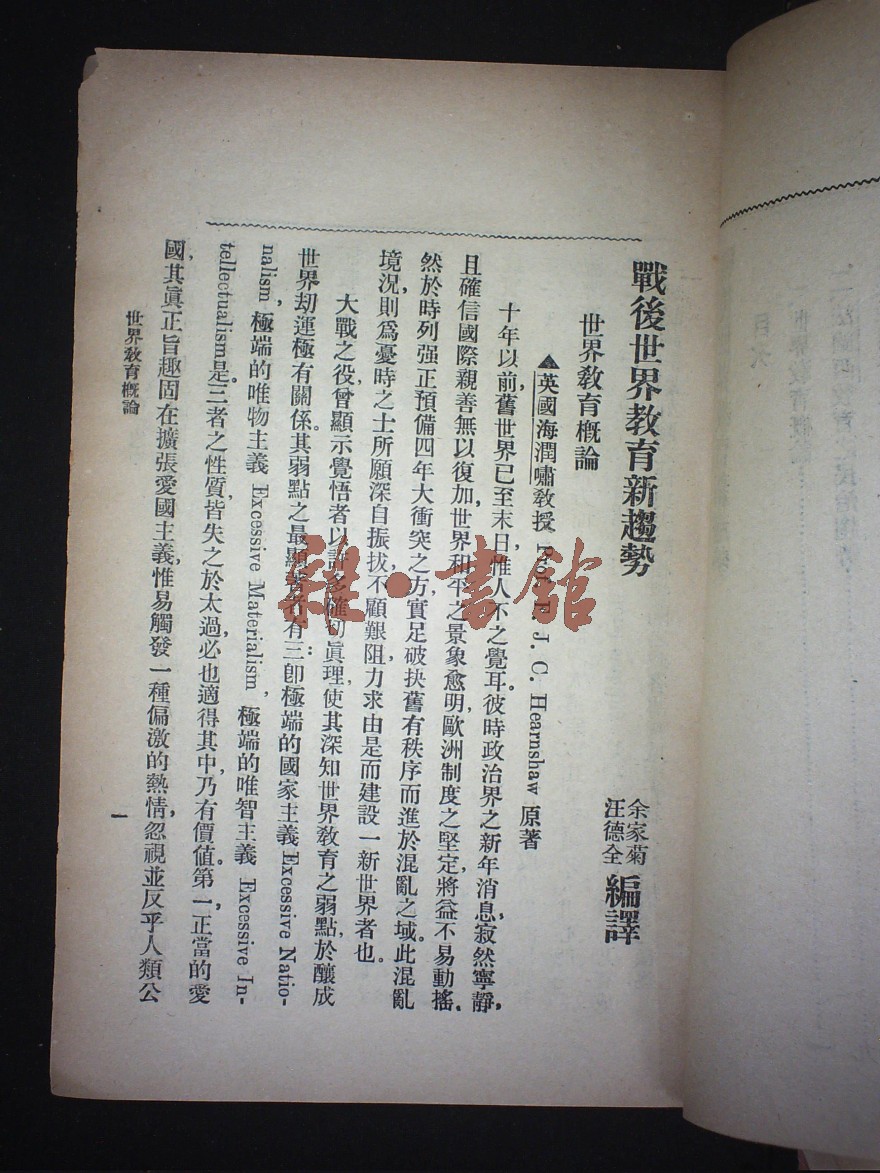 戰後世界教育新趨勢
余家菊
汪德全 編譯
世界教育概論
▲英國海潤嘯教授 Prof. F. J. C. Hearnshaw 原著
十年以前，舊世界已至末日，惟人不之覺耳。彼時政治界之新年消息，寂然寧靜，
且確信國際親善無以復加，世界和平之景象愈明，歐洲制度之堅定將益不易動搖。
然於時列强正預備四年大衝突之方，實足破抉舊有秩序而進於混亂之域。此混亂
境況則爲憂時之士所願深自振拔，不顧艱阻，力求由是而建設一新世界者也。
大戰之役，曾顯示覺悟者以許多確切眞理，使其深知世界教育之弱點，於釀成
世界劫運極有關係。其弱點之最顯著者有三：卽極端的國家主義 Excessive Natio-
nalism，極端的唯物主義 Excessive Materialism，極端的唯智主義 Excessive In-
tellectualism是。三者之性質，皆失之於太過，必也適得其中，乃有價値。第一，正當的愛
國，其眞正旨趣固在擴張愛國主義，惟易觸發一種偏激的熱情，忽視並反乎人類公
世界教育概論
一
雜·書館